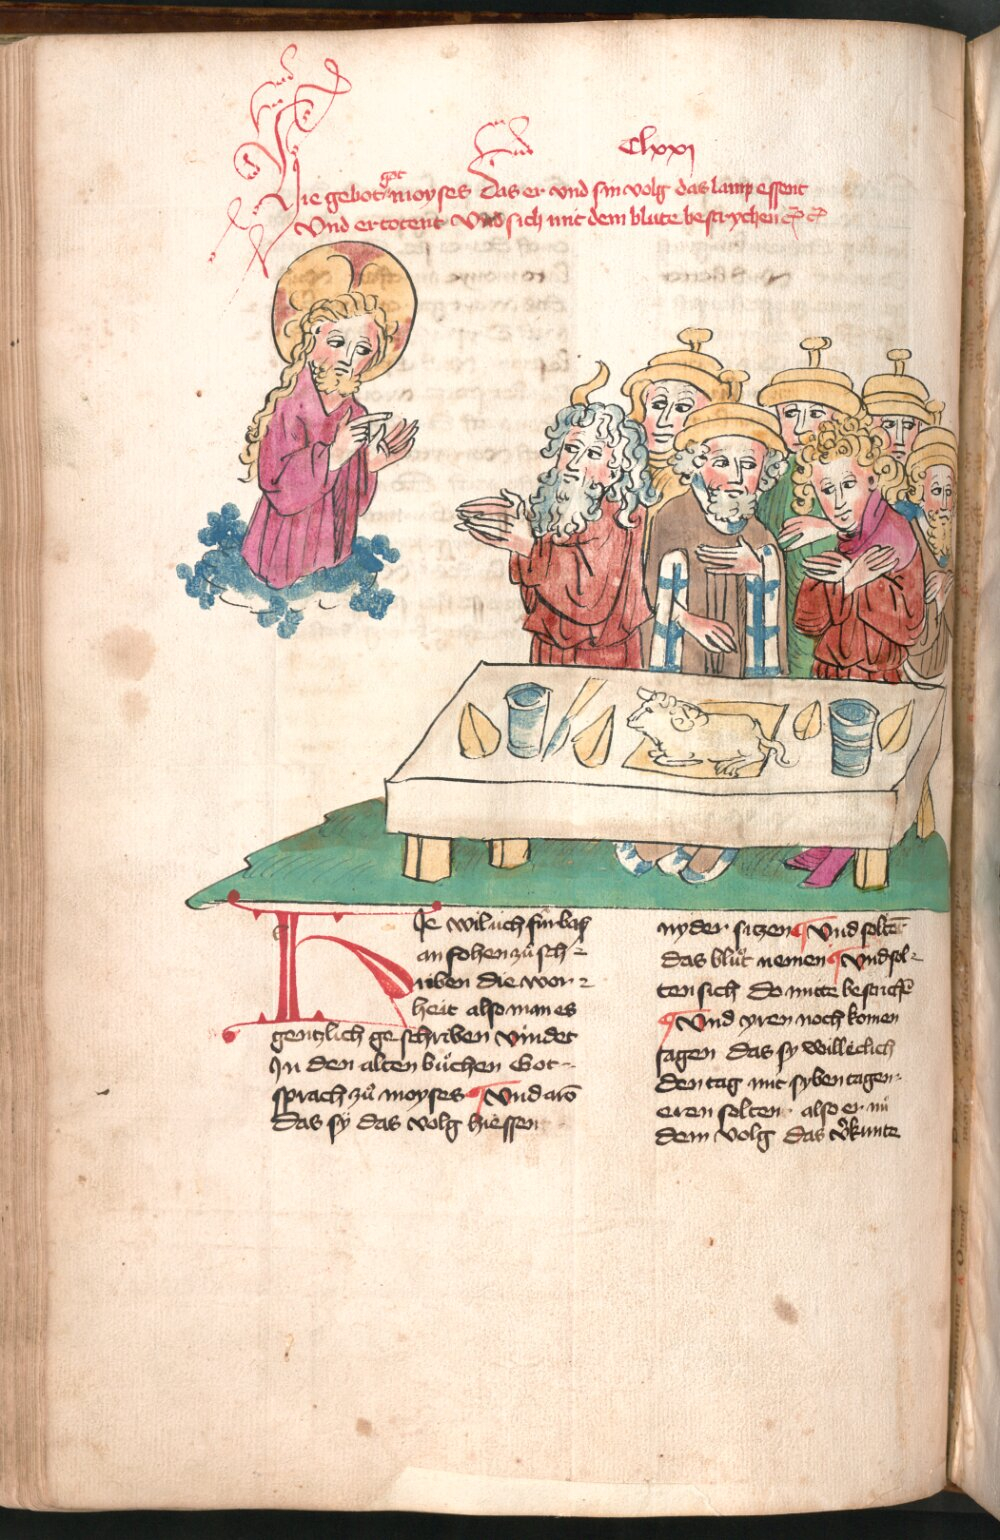 Clxxi
Hie gebot got moyses Das er vnd sin volg das lamp essent
Vnd er totent Vnd sich mit dem blute bestrychen
Hie wil ich fúrbas
an fohen zů sch
riben die wor
heit also man es
gentzlich geschriben vindet
In den alten bůchen Got
sprach zů moyses Vnd aro̅
das sÿ das volg hiessen
nyder sitzen Vnd solte̅
das blůt nemen Vnd sol
ten sich do mitte bestriche̅
Vnd yren noch komen
sagen das sy willeclich
den tag mit syben tagen
eren solten also er nů
dem volg das v̉kunte